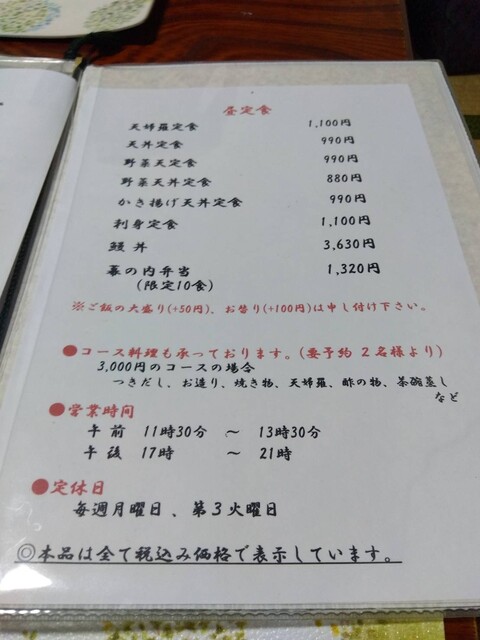 昼定食
天婦羅定食 1,100円
天丼定食 990円
野菜天定食 990円
野菜天丼定食 880円
かき揚げ天丼定食 990円
刺身定食 1,100円
鰻丼 3,630円
幕の内弁当 1,320円
(限定10食)
※ご飯の大盛り(+50円)、お替り(+100円)は申し付け下さい。
●コース料理も承っております。(要予約 2名様より)
3,000円のコースの場合
つきだし、お造り、焼き物、天婦羅、酢の物、茶碗蒸し
など
●営業時間
午前 11時30分 ～ 13時30分
午後 17時 ～ 21時
●定休日
毎週月曜日、第3火曜日
◎本品は全て税込み価格で表示しています。